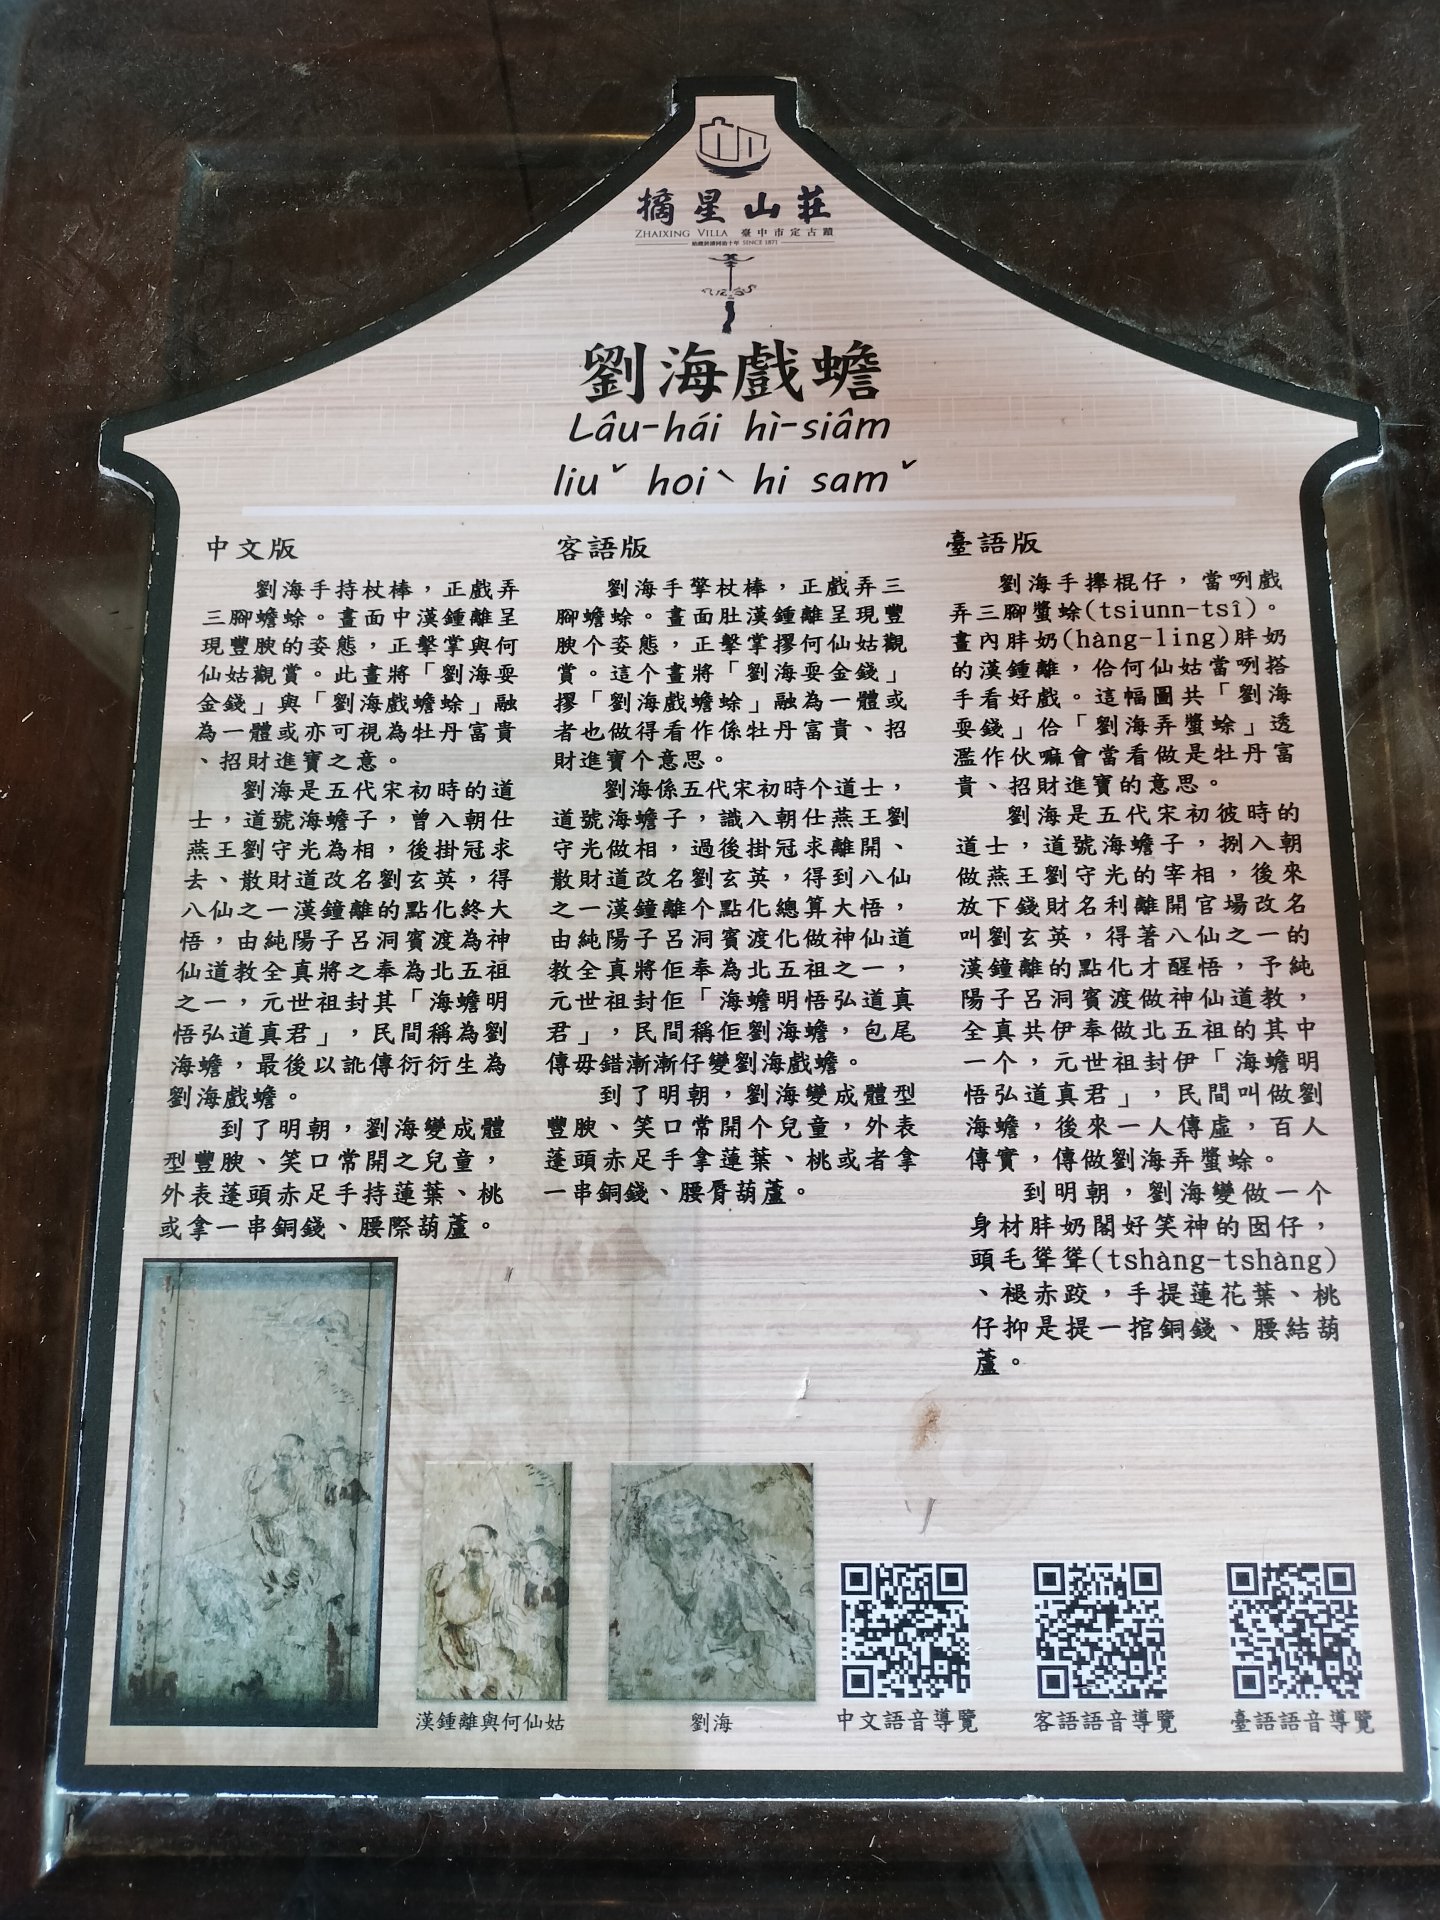 摘星山莊
ZHAIXING VILLA 臺中市定古蹟
SINCE 1871
劉海戲蟾
Lâu-hái hì-siâm
liuˇ hoiˋ hi samˇ
中文版
劉海手持杖棒，正戲弄
三腳蟾蜍。畫面中漢鍾離呈
現豐腴的姿態，正擊掌與何
仙姑觀賞。此畫將「劉海耍
金錢」與「劉海戲蟾蜍」融
為一體或亦可視為牡丹富貴
、招財進寶之意。
劉海是五代宋初時的道
士，道號海蟾子，曾入朝仕
燕王劉守光為相，後掛冠求
去、散財道改名劉玄英，得
八仙之一漢鐘離的點化終大
悟，由純陽子呂洞賓渡為神
仙道教全真將之奉為北五祖
之一，元世祖封其「海蟾明
悟弘道真君」，民間稱為劉
海蟾，最後以訛傳衍衍生為
劉海戲蟾。
到了明朝，劉海變成體
型豐腴、笑口常開之兒童，
外表蓬頭赤足手持蓮葉、桃
或拿一串銅錢、腰際葫蘆。
客語版
劉海手擎杖棒，正戲弄三
腳蟾蜍。畫面肚漢鍾離呈現豐
腴个姿態，正擊掌摎何仙姑觀
賞。這个畫將「劉海耍金錢」
摎「劉海戲蟾蜍」融為一體或
者也做得看作係牡丹富貴、招
財進寶个意思。
劉海係五代宋初時个道士，
道號海蟾子，識入朝仕燕王劉
守光做相，過後掛冠求離開、
散財道改名劉玄英，得到八仙
之一漢鐘離个點化總算大悟，
由純陽子呂洞賓渡化做神仙道
教全真將佢奉為北五祖之一，
元世祖封佢「海蟾明悟弘道真
君」，民間稱佢劉海蟾，包尾
傳毋錯漸漸仔變劉海戲蟾。
到了明朝，劉海變成體型
豐腴、笑口常開个兒童，外表
蓬頭赤足手拿蓮葉、桃或者拿
一串銅錢、腰脣葫蘆。
臺語版
劉海手攑棍仔，當咧戲
弄三腳螿蜍(tsiunn-tsî)。
畫內胖奶(hàng-ling)胖奶
的漢鍾離，佮何仙姑當咧搭
手看好戲。這幅圖共「劉海
耍錢」佮「劉海弄螿蜍」透
濫作伙嘛會當看做是牡丹富
貴、招財進寶的意思。
劉海是五代宋初彼時的
道士，道號海蟾子，捌入朝
做燕王劉守光的宰相，後來
放下錢財名利離開官場改名
叫劉玄英，得著八仙之一的
漢鐘離的點化才醒悟，予純
陽子呂洞賓渡做神仙道教，
全真共伊奉做北五祖的其中
一个，元世祖封伊「海蟾明
悟弘道真君」，民間叫做劉
海蟾，後來一人傳虛，百人
傳實，傳做劉海弄螿蜍。
到明朝，劉海變做一个
身材胖奶閣好笑神的囡仔，
頭毛聳聳(tshàng-tshàng)
、褪赤跤，手提蓮花葉、桃
仔抑是提一捾銅錢、腰結葫
蘆。
漢鍾離與何仙姑
劉海
中文語音導覽
客語語音導覽
臺語語音導覽